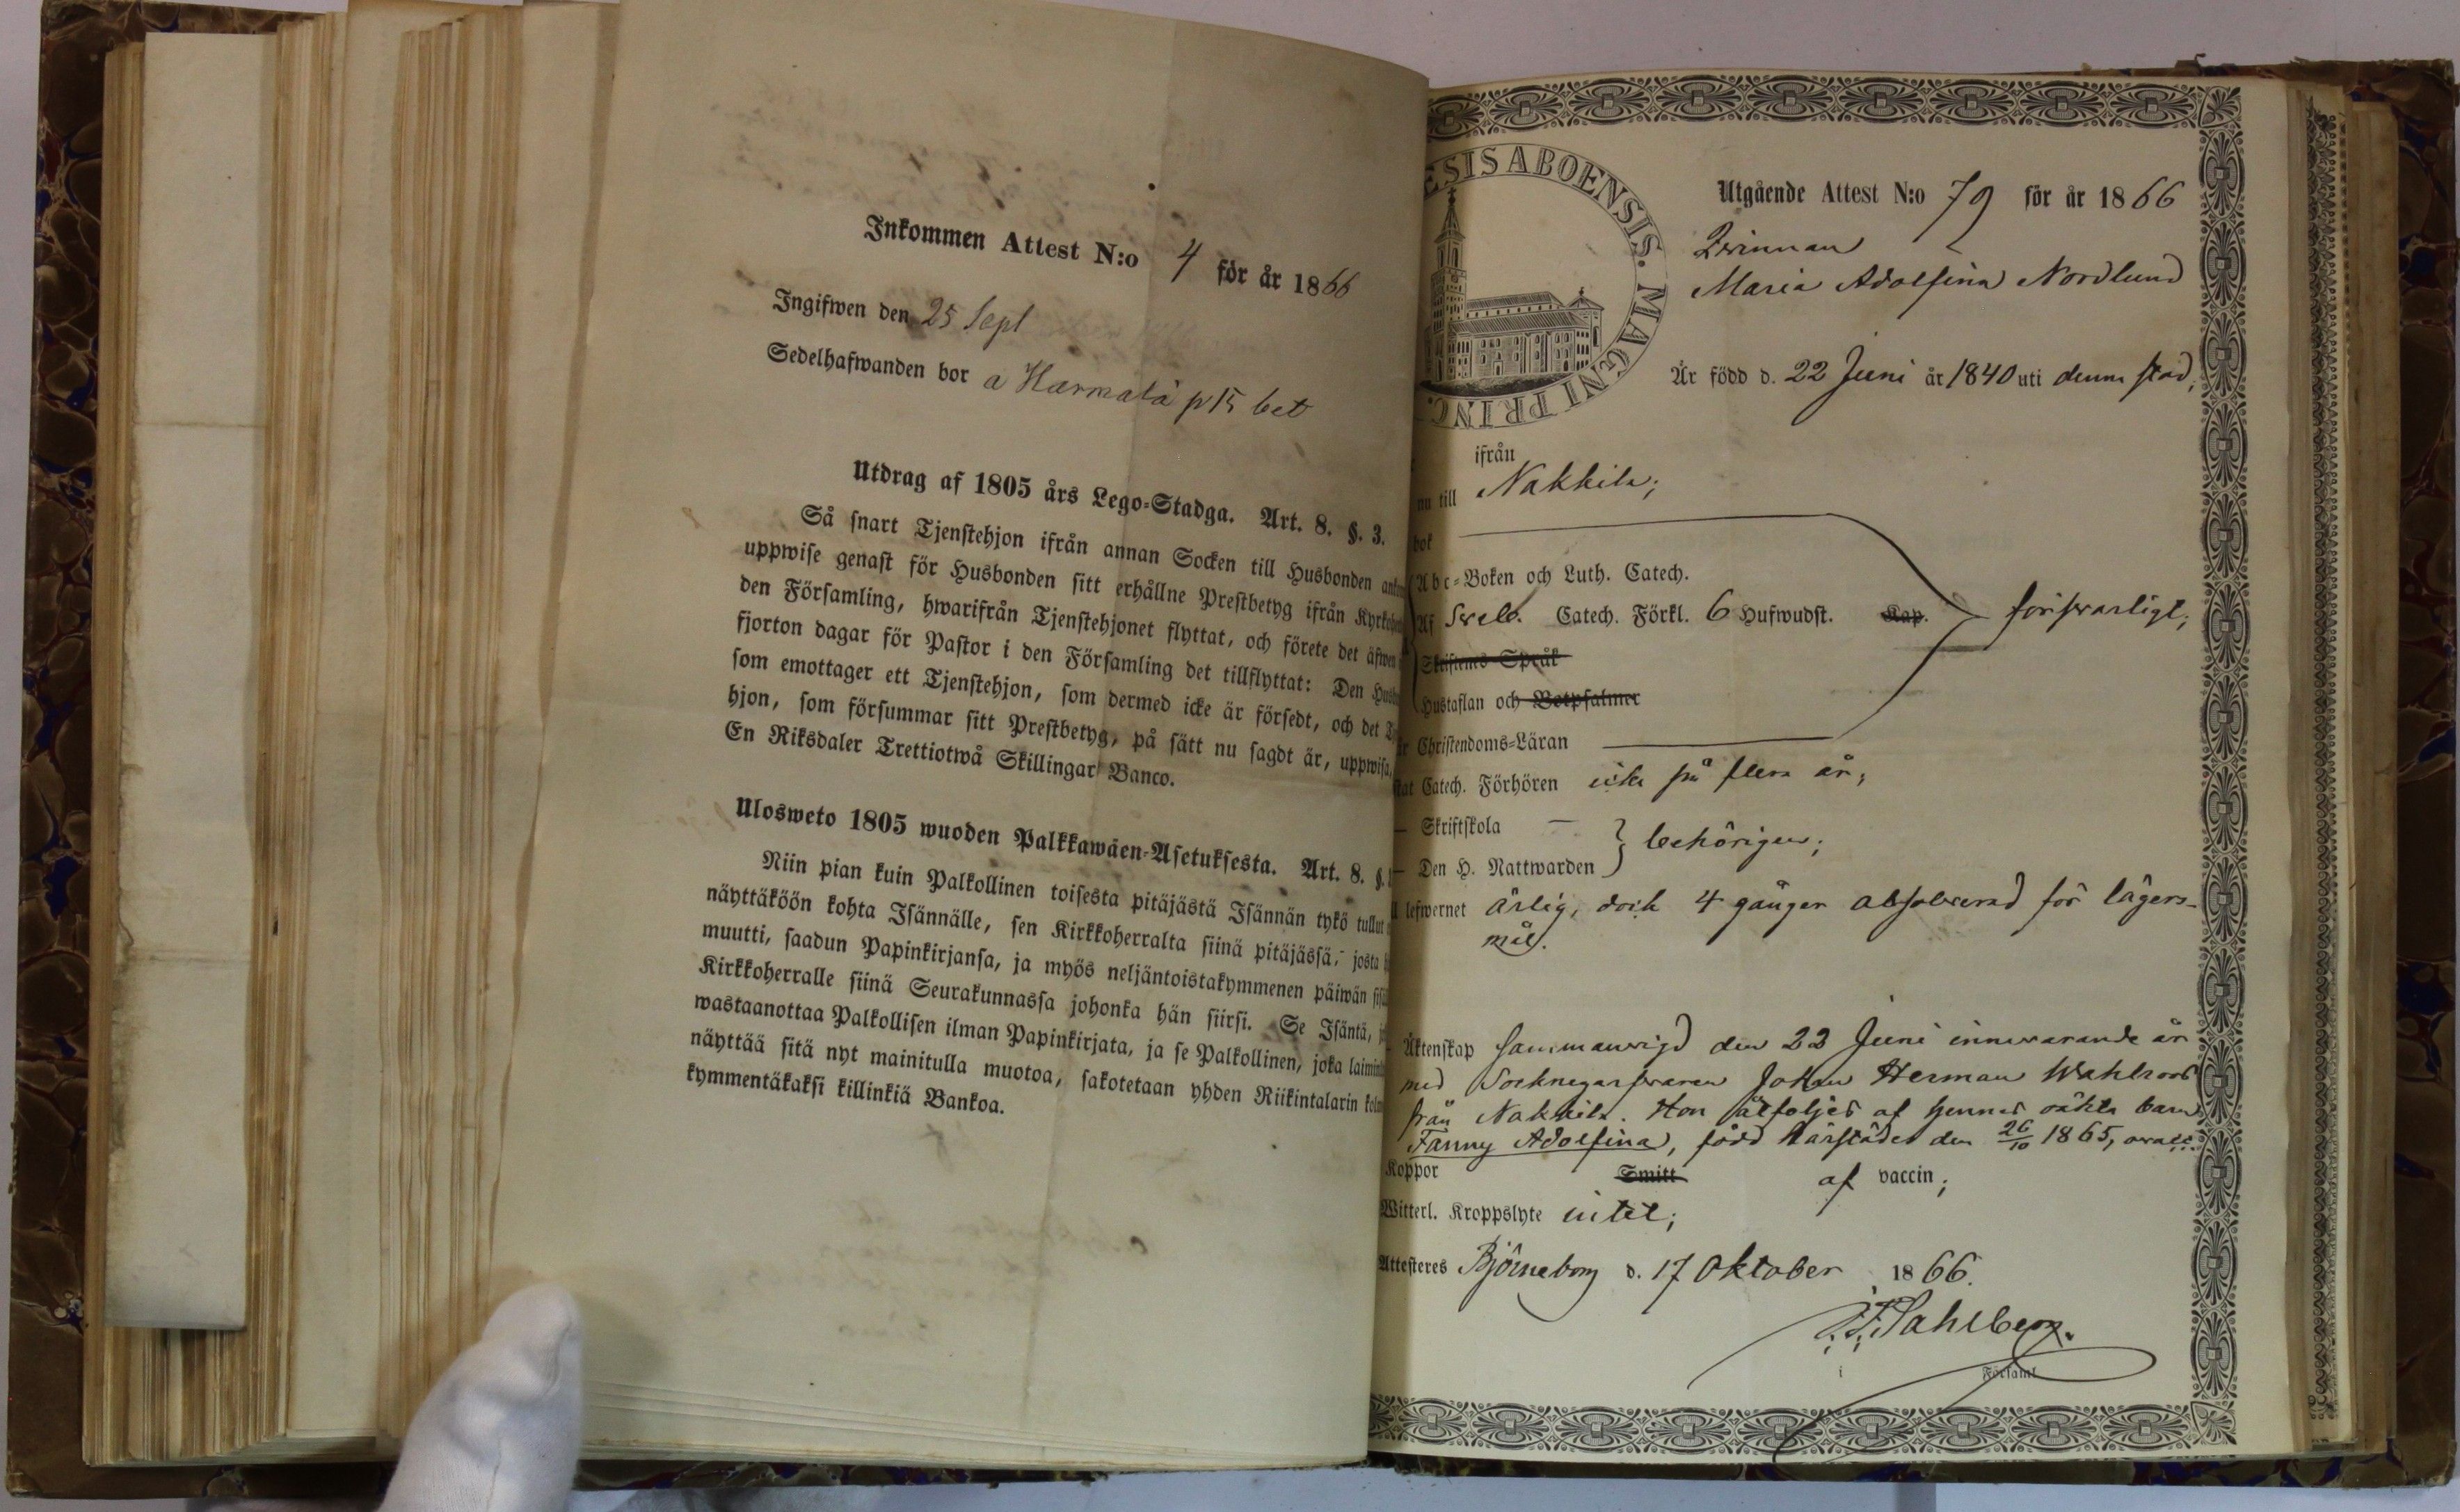 Inkommen Attest N:o 4 för år 1866
Ingifwen den 25 Sept
Sedelhafwanden bor a Harmala
Utdrag af 1805 års Lego-Stadga. Art. 8. §. 3.
Så snart Tjenstehjon ifrån annan Socken till Husbonden
uppwise genast för Husbonden sitt erhållne Prestbetyg ifrån
den Församling, hwarifrån Tjenstehjonet flyttat, och förete det äfwen
fjorton dagar för Pastor i den Församling det tillflyttat: Den
som emottager ett Tjenstehjon, som dermed icke är försedt, och det
hjon, som försummar sitt Prestbetyg, på sätt nu sagdt är, uppwisa,
En Riksdaler Trettiotwå Skillingar Banco.
Ulosweto 1805 wuoden Palkkawäen-Asetuksesta. Art. 8. §.
Niin pian kuin Palkollinen toisesta pitäjästä Isännän tykö tullut
näyttäköön kohta Isännälle, sen Kirkkoherralta siinä pitäjässä, josta
muutti, saadun Papinkirjansa, ja myös neljäntoistakymmenen päiwän
Kirkkoherralle siinä Seurakunnassa johonka hän siirsi. Se Isäntä,
wastaanottaa Palkollisen ilman Papinkirjata, ja se Palkollinen, joka
näyttää sitä nyt mainitulla muotoa, sakotetaan yhden Riikintalarin
kymmentäkaksi killinkiä Bankoa.
ESIS ABOENSIS. MAGNI PRINC.
Utgående Attest N:o 79 för år 1866
Qwinnan
Maria Adolfina Nordlund
Är född d. 22 Juni år 1840 uti denna stad,
ifrån
till Nakkila;
bok
Abc-Boken och Luth. Catech.
Af Sveb. Catech. Förkl. 6 Hufwudst. Kap. försvarligt;
Skriftenes Språk
Hustaflan och Botpsalmer
Christendoms-Läran
Catech. Förhören icke på flera år;
— Skriftskola —
— Den H. Nattwarden behörigen;
lefwernet ärlig, dock 4 gånger absolverad för lägers-
mål.
Äktenskap sammanvigd den 22 Juni innevarande år
med Socknegarfvaren Johan Herman Wahlroos
från Nakkila. Hon åtföljes af hennes oäkta barn
Fanny Adolfina, född härstädes den 26/10 1865,
Koppor Smitt af vaccin;
Witterl. Kroppslyte intet;
Attesteres Björneborg d. 17 Oktober 1866.
Sahlberg.
i Församl.